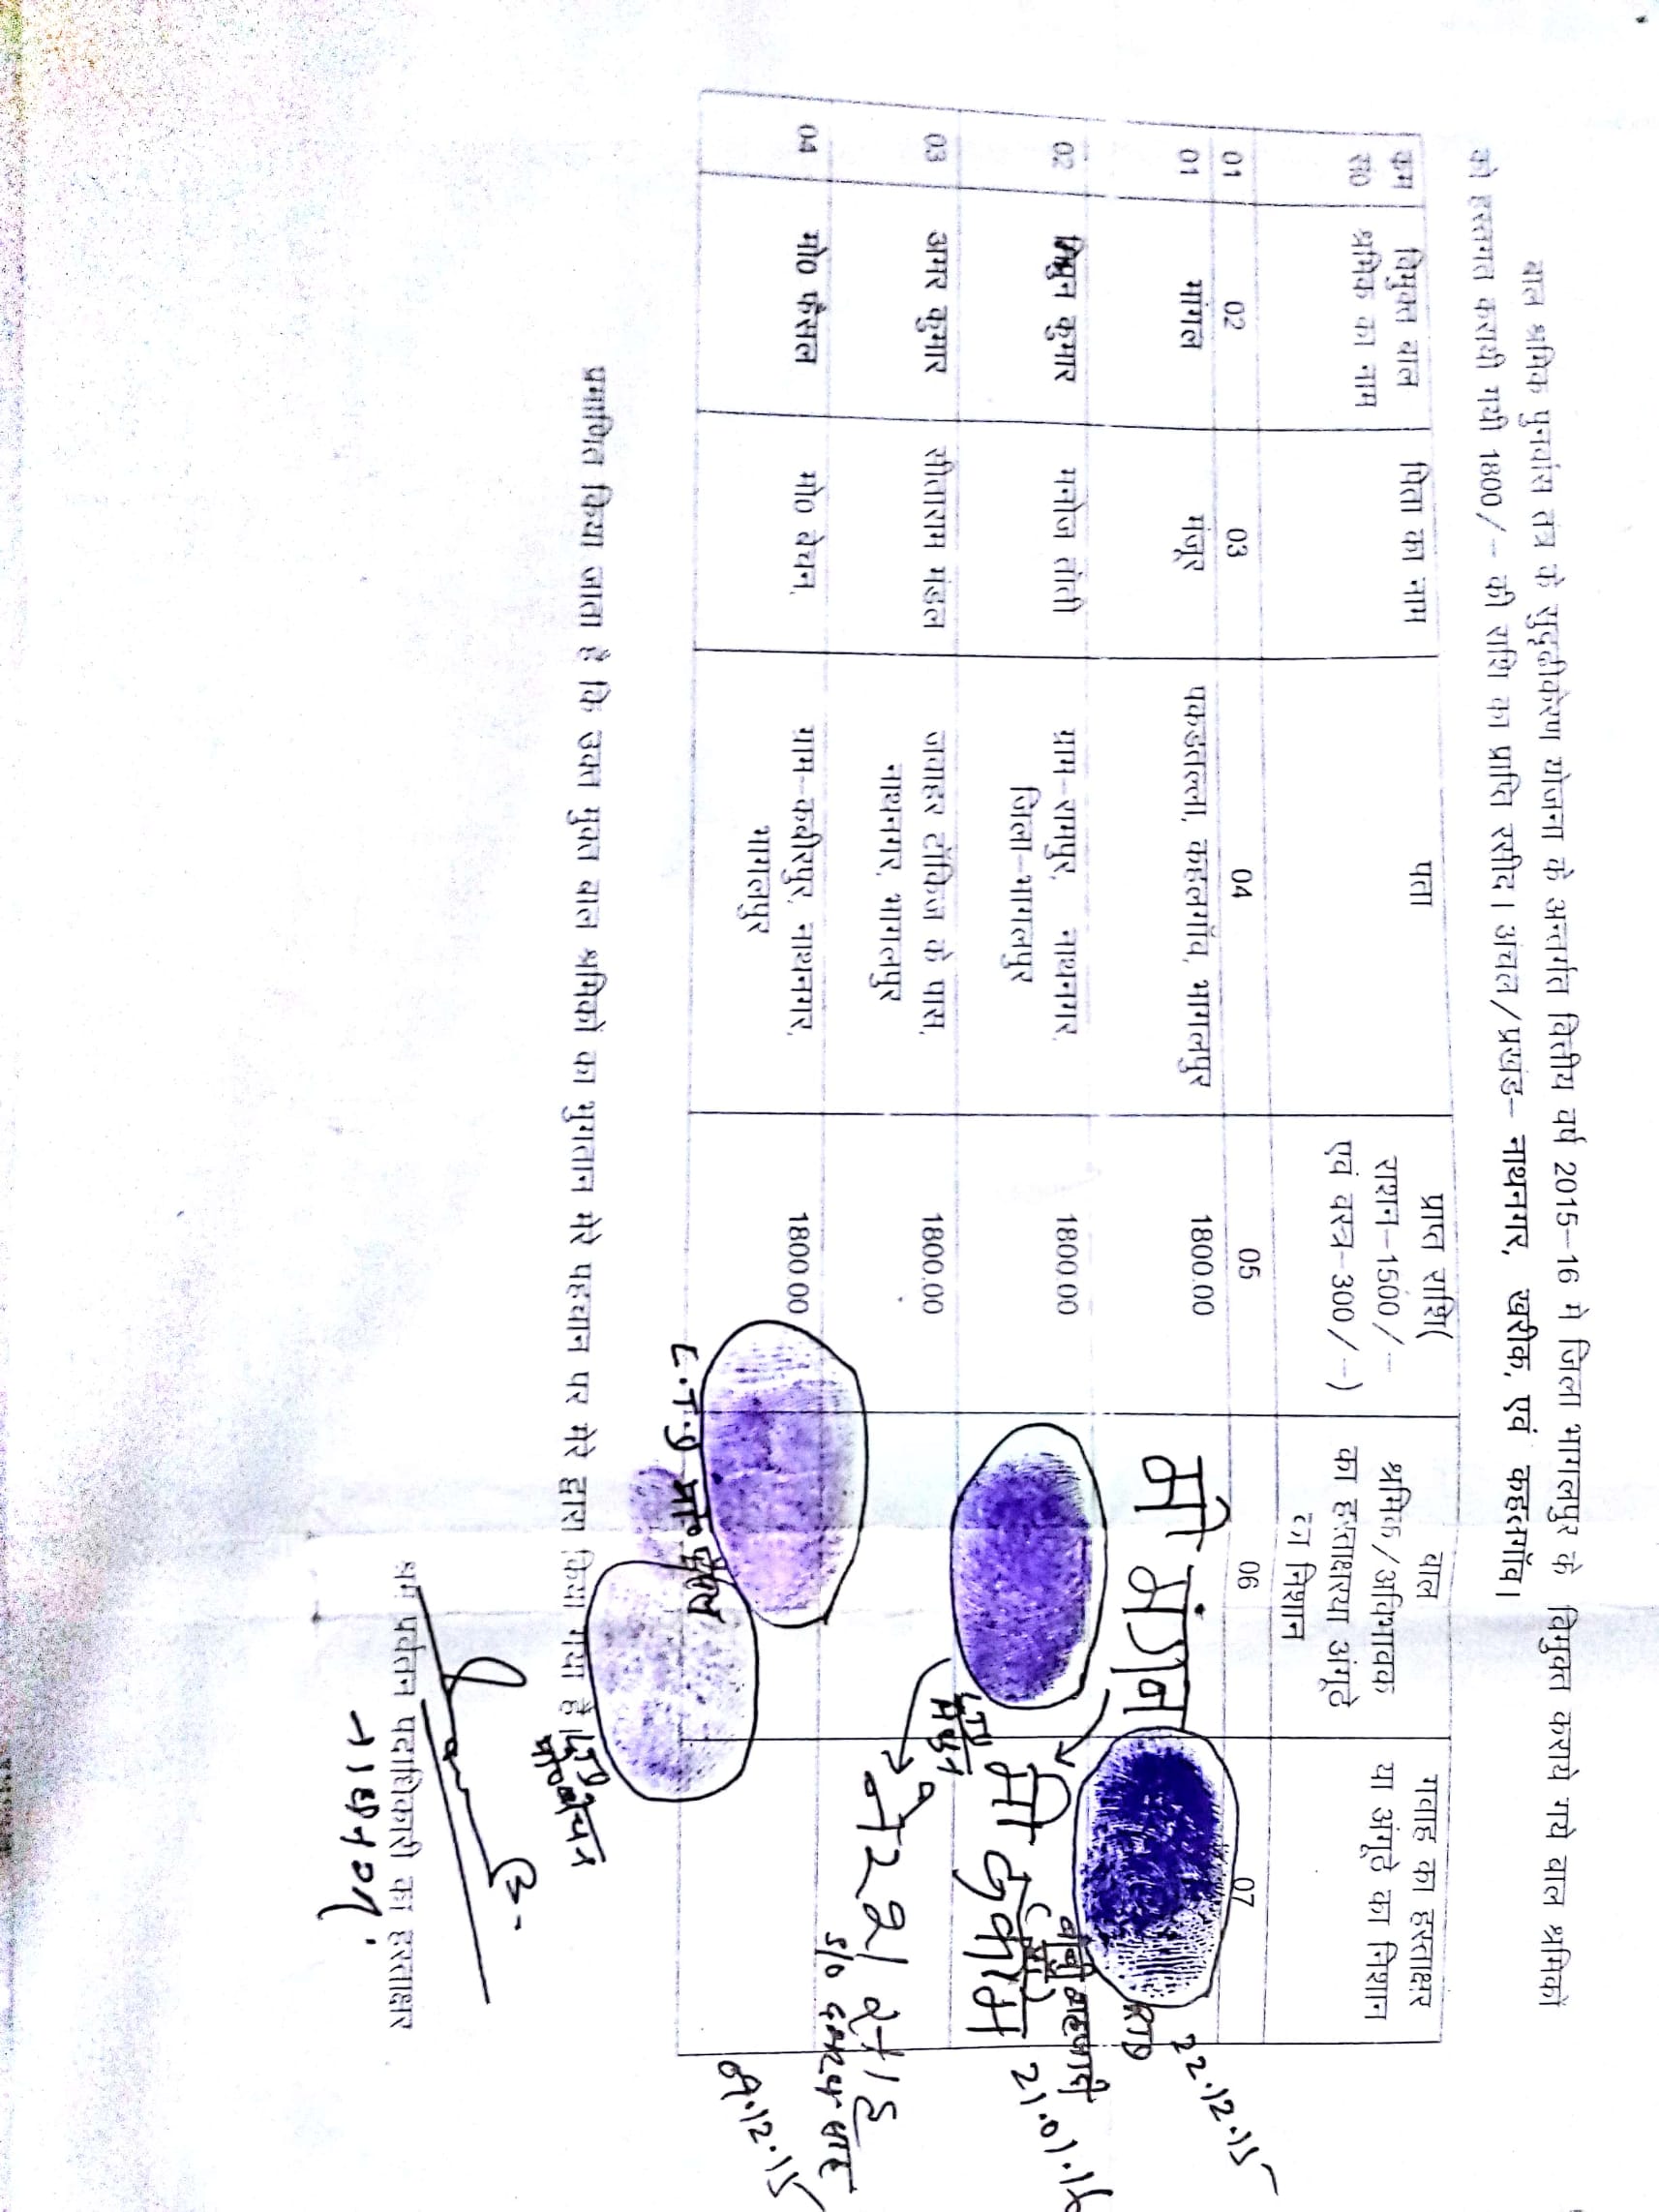 बाल श्रमिक पुनर्वास तंत्र के सुदृढीकरण योजना के अन्तर्गत वित्तीय वर्ष 2015-16 मे जिला भागलपुर के विमुक्त कराये गये बाल श्रमिको
को हस्तगत करायी गयी 1800/- की राशि का प्राप्ति रसीद। अंचल/प्रखंड- नाथनगर, खरीक, एवं कहलगॉव।
कम सं0 विमुक्त बाल श्रमिक का नाम पिता का नाम पता प्राप्त राशि( राशन-1500/- एवं वस्त्र-300/-) बाल श्रमिक/अभिभावक का हस्ताक्षरया अंगूठे का निशान गवाह का हस्ताक्षर या अंगूठे का निशान
01 02 03 04 05 06 07
01 मांगल मंजूर पकडतल्ला, कहलगॉव, भागलपुर 1800.00 मो मंगल
RTD 22.12.15
02 मिथुन कुमार मनोज तांती ग्राम-रामपुर, नाथनगर, जिला-भागलपुर 1800.00
LTD मिथुन
21.01.16
03 अमर कुमार सीताराम मंडल जवाहर टॉकिज के पास, नाथनगर, भागलपुर 1800.00
S/O
04 मो0 फैसल मो0 बेचन, ग्राम-कबीरपुर, नाथनगर, भागलपुर 1800.00
09.12.15
मो० फैसल
प्रमाणित किया जाता है कि उक्त मुक्त बाल श्रमिको का भुगतान मेरे पहचान पर मेरे द्वारा किया गया है।
LTD मो० बेचन
श्रम प्रर्वतन पदाधिकारी का हस्ताक्षर
नाथनगर